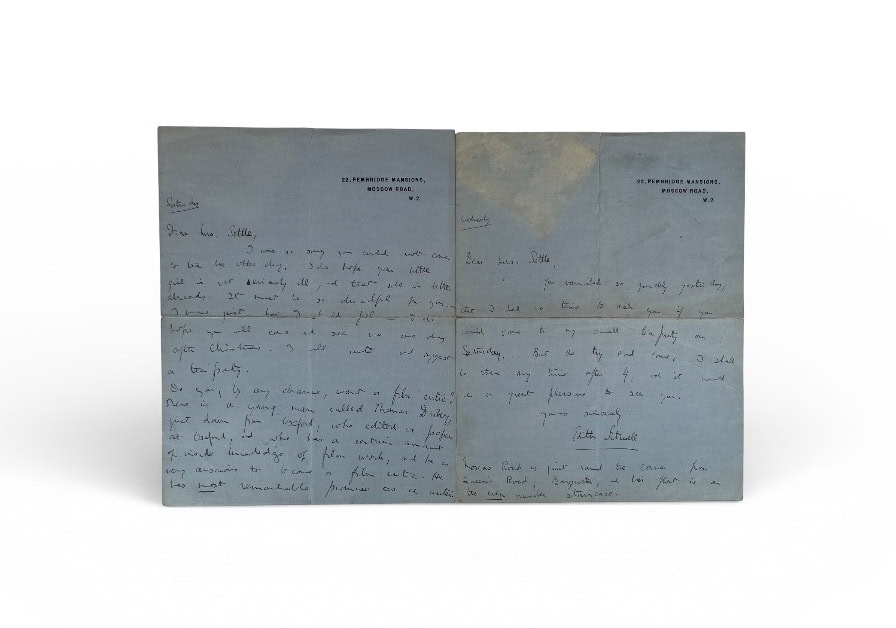 22, PEMBRIDGE MANSIONS,
MOSCOW ROAD,
W.2.
Saturday
Dear Mrs. Settle,
I was so sorry you could not come
to tea the other day. I do hope your little
girl is not seriously ill, and that she is better
already. It must be so dreadful for you,
I know just how I should feel — I do
hope you will come and see us one day
after Christmas. I will write and suggest
a tea party.
Do you, by any chance, want a film critic?
There is a young man called Thomas Driberg,
just down from Oxford, who edited a paper
at Oxford, and who has a certain amount
of inside knowledge of film work, and he is
very anxious to become a film critic. He
has most remarkable promise as a writer
22, PEMBRIDGE MANSIONS,
MOSCOW ROAD,
W.2.
Wednesday
Dear Mrs. Settle,
You vanished so quickly yesterday,
that I had no time to ask you if you
would come to my small tea party on
Saturday. But do try and come, I shall
be there any time after 4, and it would
be a great pleasure to see you.
Yours sincerely
Edith Sitwell
Moscow Road is just round the corner from
Queen's Road, Bayswater, and this flat is on
the even number staircase.